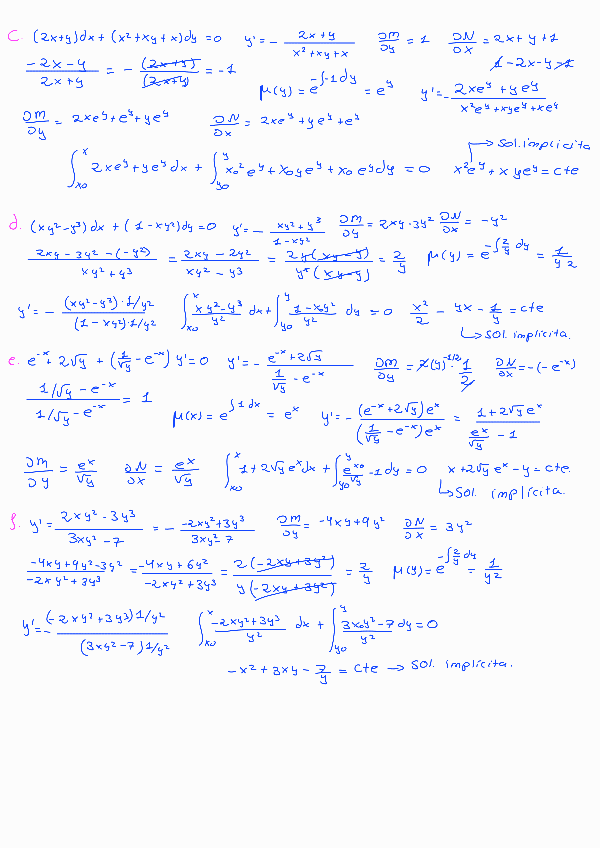 c (2x+y)dx + (x²+xy+x)dy = 0 y' = - (2x+y)/(x²+xy+x) ∂M/∂y = 1 ∂N/∂x = 2x+y+1
(-2x-y)/(2x+y) = - (2x+y)/(2x+y) = -1 1-2x-y-1
μ(y) = e^(-∫-1dy) = e^y y' = - (2xe^y+ye^y)/(x²e^y+xye^y+xe^y)
∂M/∂y = 2xe^y+e^y+ye^y ∂N/∂x = 2xe^y+ye^y+e^y
→ sol. implícita
∫_{x0}^{x} 2xe^y+ye^y dx + ∫_{y0}^{y} x0²e^y+x0ye^y+x0e^y dy = 0 x²e^y+xye^y = cte
d. (xy²-y³)dx + (1-xy²)dy = 0 y' = - (xy²+y³)/(1-xy²) ∂M/∂y = 2xy·3y² ∂N/∂x = -y²
(2xy-3y²-(-y²))/(xy²+y³) = (2xy-2y²)/(xy²-y³) = 2y(xy-y)/y²(xy-y) = 2/y μ(y) = e^(-∫2/y dy) = 1/y²
y' = - ((xy²-y³)·1/y²)/((1-xy²)·1/y²) ∫_{x0}^{x} (xy²-y³)/y² dx + ∫_{y0}^{y} (1-x0y²)/y² dy = 0 x²/2 - yx - 1/y = cte
→ sol. implícita.
e. e^-x + 2√y + (1/√y - e^-x) y' = 0 y' = - (e^-x+2√y)/(1/√y - e^-x) ∂M/∂y = 2(y)^-1/2 · 1/2 ∂N/∂x = -(-e^-x)
(1/√y - e^-x)/(1/√y - e^-x) = 1 μ(x) = e^(∫1dx) = e^x y' = - ((e^-x+2√y)e^x)/((1/√y - e^-x)e^x) = (1+2√y e^x)/(e^x/√y - 1)
∂M/∂y = e^x/√y ∂N/∂x = e^x/√y ∫_{x0}^{x} 1+2√y e^x dx + ∫_{y0}^{y} e^x0/√y - 1 dy = 0 x+2√y e^x - y = cte.
→ sol. implícita.
f. y' = (2xy²-3y³)/(3xy²-7) = - (-2xy²+3y³)/(3xy²-7) ∂M/∂y = -4xy+9y² ∂N/∂x = 3y²
(-4xy+9y²-3y²)/(-2xy²+3y³) = (-4xy+6y²)/(-2xy²+3y³) = 2(-2xy+3y²)/y(-2xy+3y²) = 2/y μ(y) = e^(-∫2/y dy) = 1/y²
y' = - ((-2xy²+3y³)1/y²)/((3xy²-7)1/y²) ∫_{x0}^{x} (-2xy²+3y³)/y² dx + ∫_{y0}^{y} (3x0y²-7)/y² dy = 0
-x²+3xy-7/y = cte → sol. implícita.